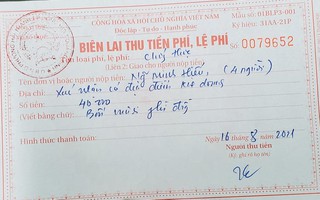 CỘNG HÒA XÃ HỘI CHỦ NGHĨA VIỆT NAM
Độc lập - Tự do - Hạnh phúc
Mẫu số: 01BLP3-001
Ký hiệu: 01AA-21P
BIÊN LAI THU TIỀN PHÍ, LỆ PHÍ
Số: 0079652
Tên loại phí, lệ phí: Chợ
(Liên 2: Giao cho người nộp tiền)
Tên đơn vị hoặc người nộp tiền: Minh Hiếu, (4 người)
Địa chỉ: Xác nhận có địa điểm
Số tiền: 40.000
(Viết bằng chữ): Bốn mươi
Hình thức thanh toán:
Ngày 16 tháng 8 năm 2021
Người thu tiền
(Ký, ghi rõ họ tên)